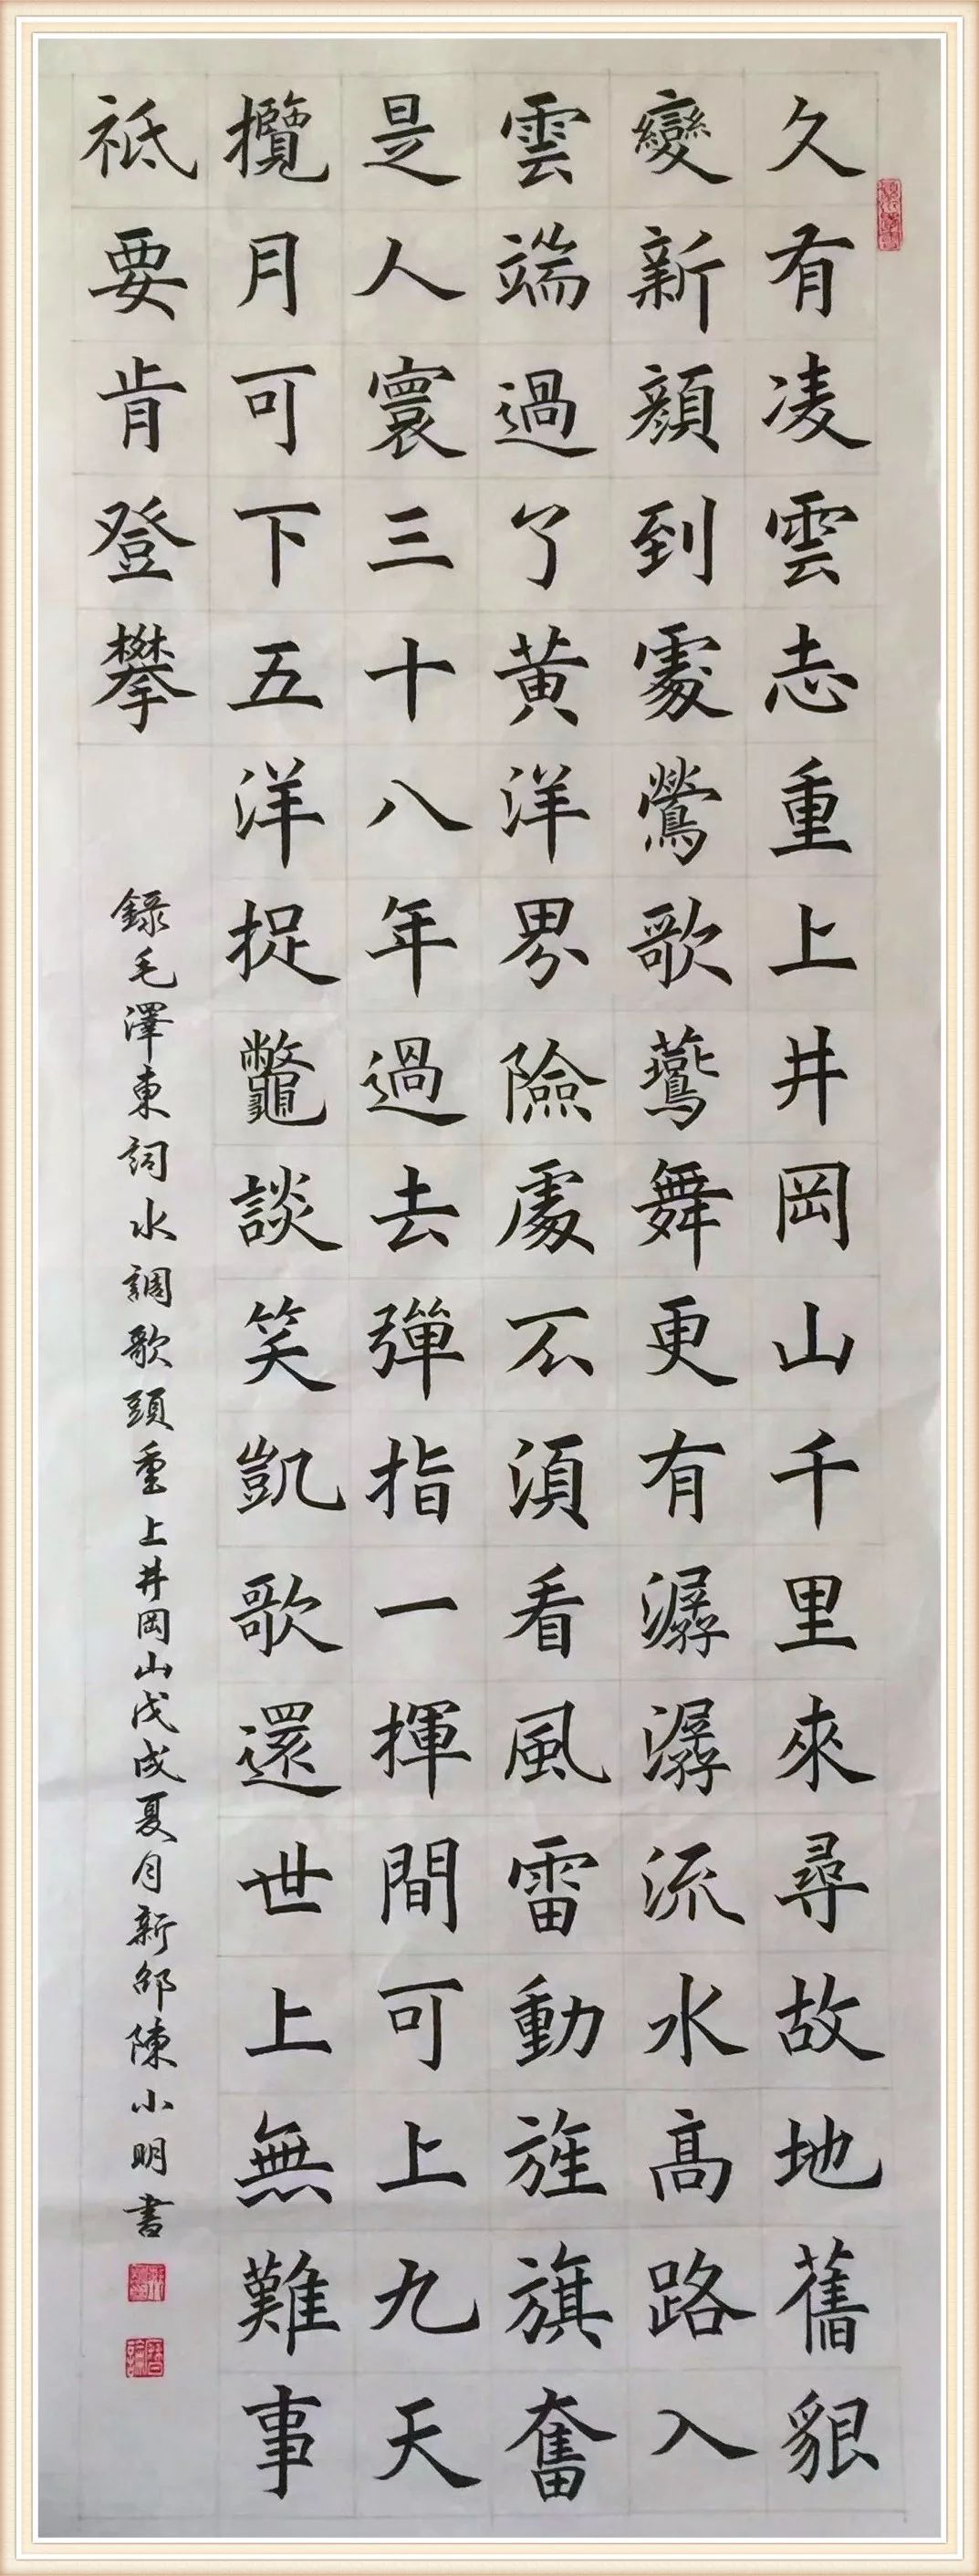 久有凌雲志重上井岡山千里來尋故地舊貌
變新顔到處鶯歌鷰舞更有潺潺流水髙路入
雲端過了黃洋界險處不須看風雷動旌旗奮
是人寰三十八年過去彈指一揮間可上九天
攬月可下五洋捉鼈談笑凱歌還世上無難事
祗要肯登攀
錄毛澤東詞水調歌頭重上井岡山戊戌夏月新邵陳小明書